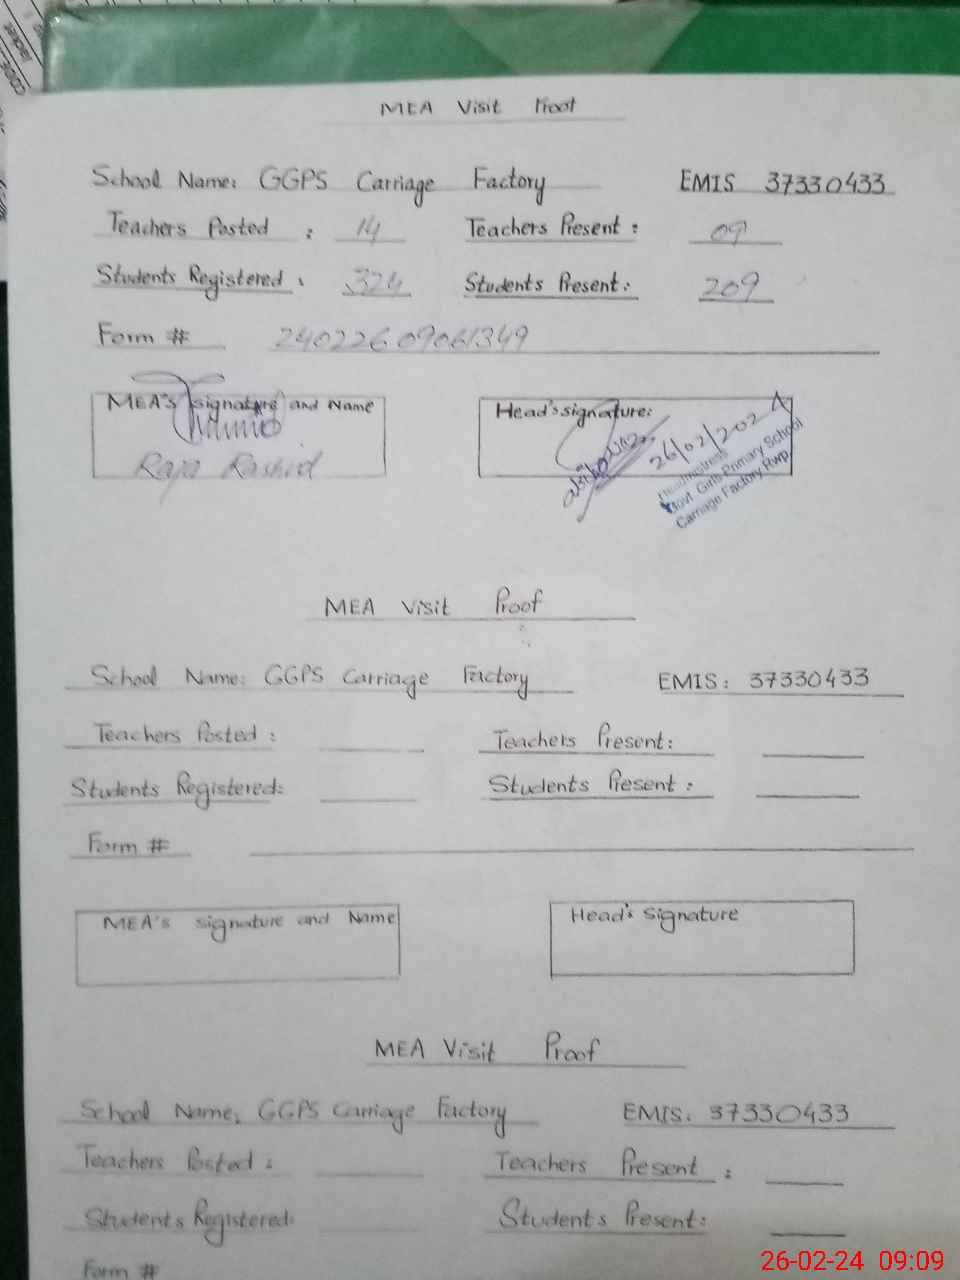 MEA Visit Proof
School Name: GGPS Carriage Factory EMIS 37330433
Teachers Posted : 14 Teachers Present : 09
Students Registered : 324 Students Present : 209
Form # 24022609061349
MEA's signature and Name
Raja Rashid
Head's signature:
26/02/202
Headmistress
Govt. Girls Primary School
Carriage Factory Rwp.
MEA Visit Proof
School Name: GGPS Carriage Factory EMIS: 37330433
Teachers Posted : Teachers Present:
Students Registered: Students Present :
Form #
MEA's signature and Name
Head's Signature
MEA Visit Proof
School Name, GGPS Carriage Factory EMIS. 37330433
Teachers Posted : Teachers Present :
Students Registered: Students Present:
Form #
26-02-24 09:09